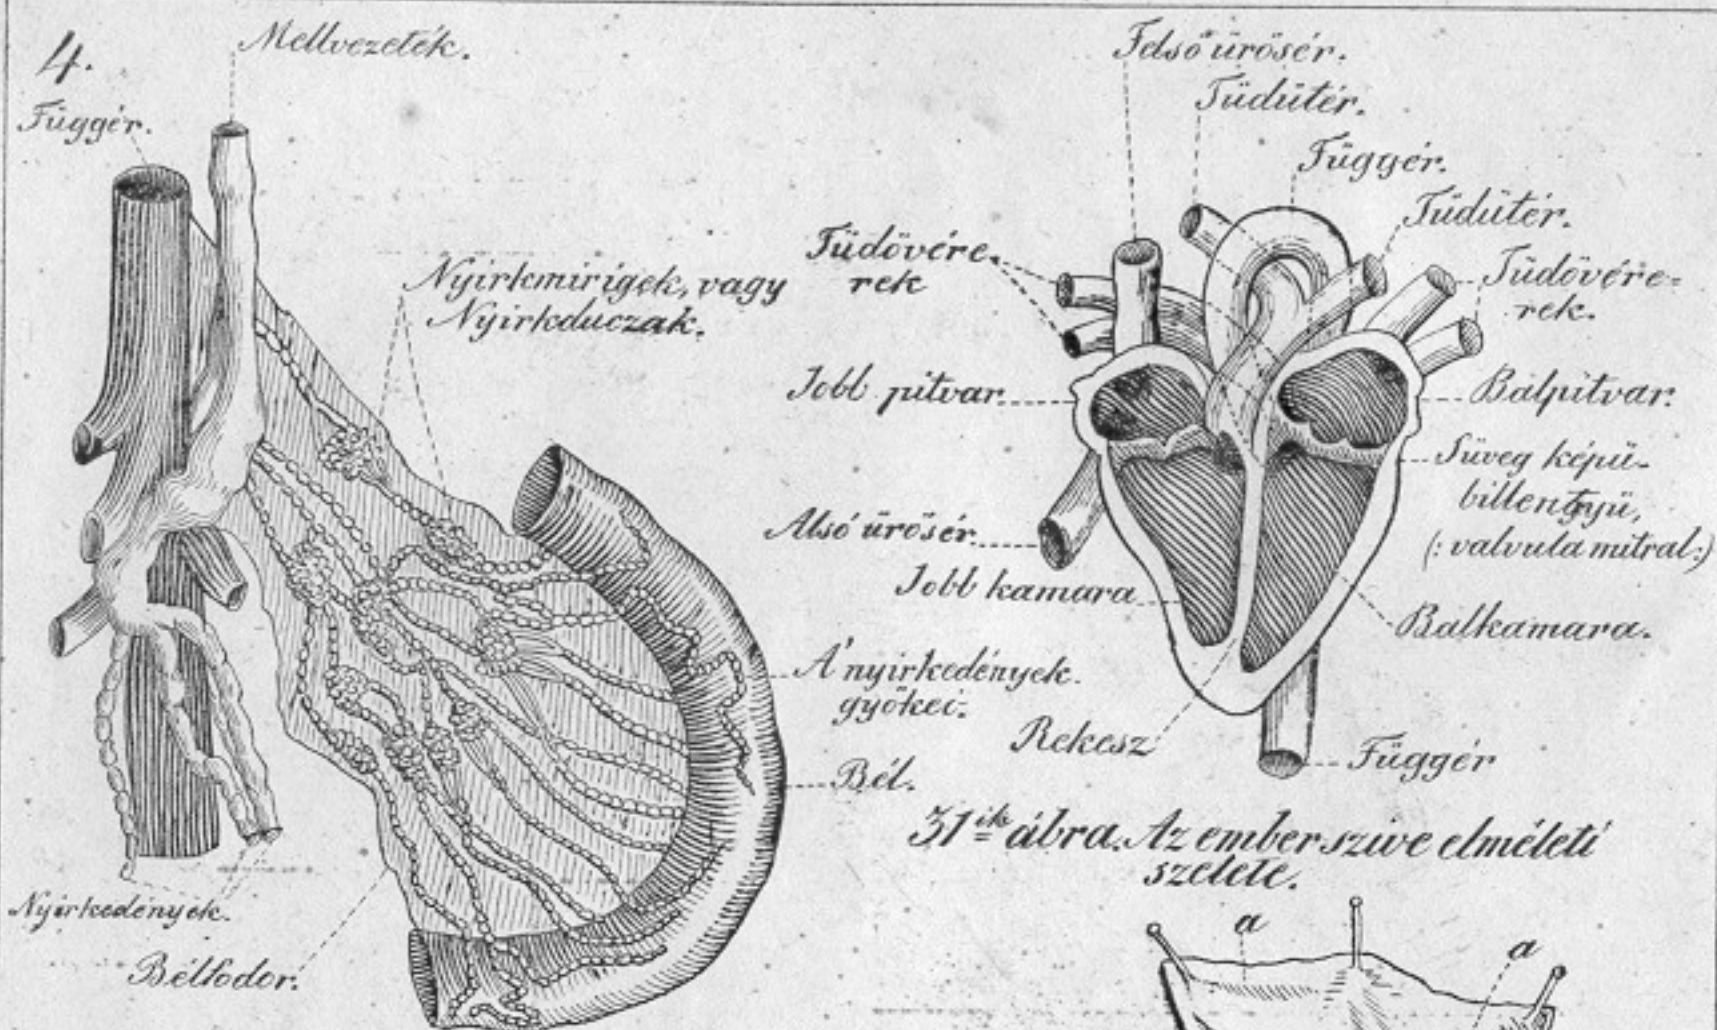 4.
Mellvezeték.
Függér.
Nyirkmirigek, vagy
Nyirkduczak.
A' nyirkedények
gyökei.
Bél.
Nyirkedények.
Bélfodor.
Felső ürősér.
Tüdütér.
Függér.
Tüdütér.
Tüdővére-
rek
Tüdővére-
rek.
Jobb pitvar
Balpitvar.
Süveg képü-
billentyü,
(: valvula mitral:)
Alsó ürősér
Jobb kamara
Balkamara.
Rekesz
Függér
31ik ábra. Az ember szive elméleti
szelete.
a
a